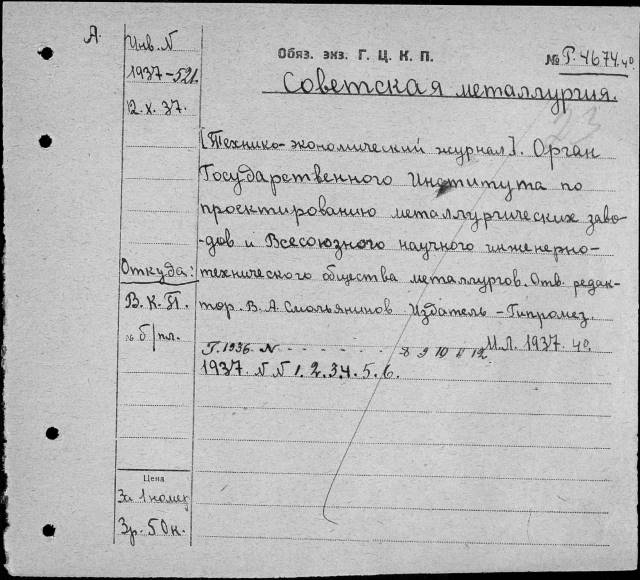 А.
Инв. N
1937-521.
12.X.37.
Обяз. экз. Г. Ц. К. П.
№ Г. 4674. 40
Советская металлургия.
23
[Технико-экономический журнал]. Орган
Государственного Института по
проектированию металлургических заво-
-дов и Всесоюзного научного инженерно-
Откуда:
технического общества металлургов. Отв. редак-
В. К. П.
тор. В. А. Смольянинов Издатель - Гипромез.
№ б/пл.
М.Л. 1937. 40.
Г. 1936. N - - - - - - - 8 9 10 11 12
1937. N N 1. 2. 3 4. 5. 6.
Цена
За 1 номер
3р. 50 к.